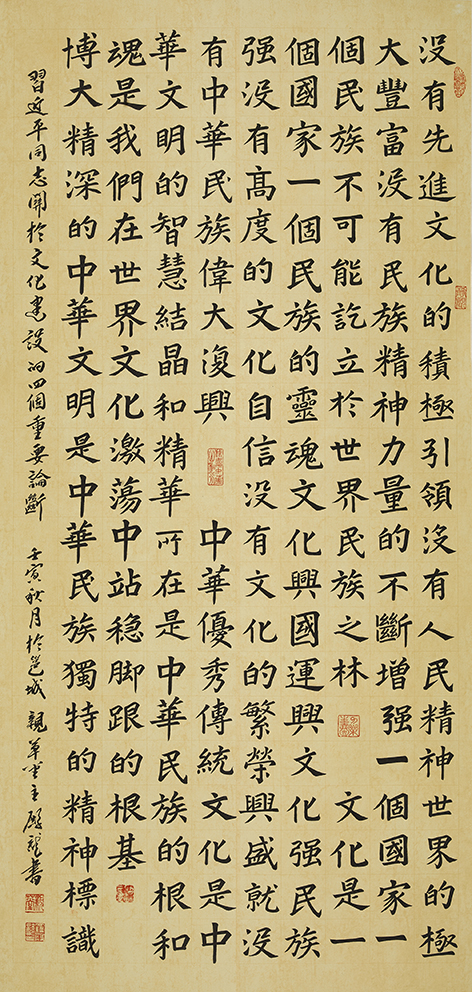 没有先進文化的積極引領没有人民精神世界的極
大豐富没有民族精神力量的不斷增强一個國家一
個民族不可能訖立於世界民族之林 文化是一
個國家一個民族的靈魂文化興國運興文化强民族
强没有髙度的文化自信没有文化的繁榮興盛就没
有中華民族偉大復興 中華優秀傳統文化是中
華文明的智慧結晶和精華所在是中華民族的根和
魂是我們在世界文化激蕩中站稳脚跟的根基
博大精深的中華文明是中華民族獨特的精神標識
習近平同志關於文化建設的四個重要論斷 壬寅秋月於邕城 親草堂主 龍書